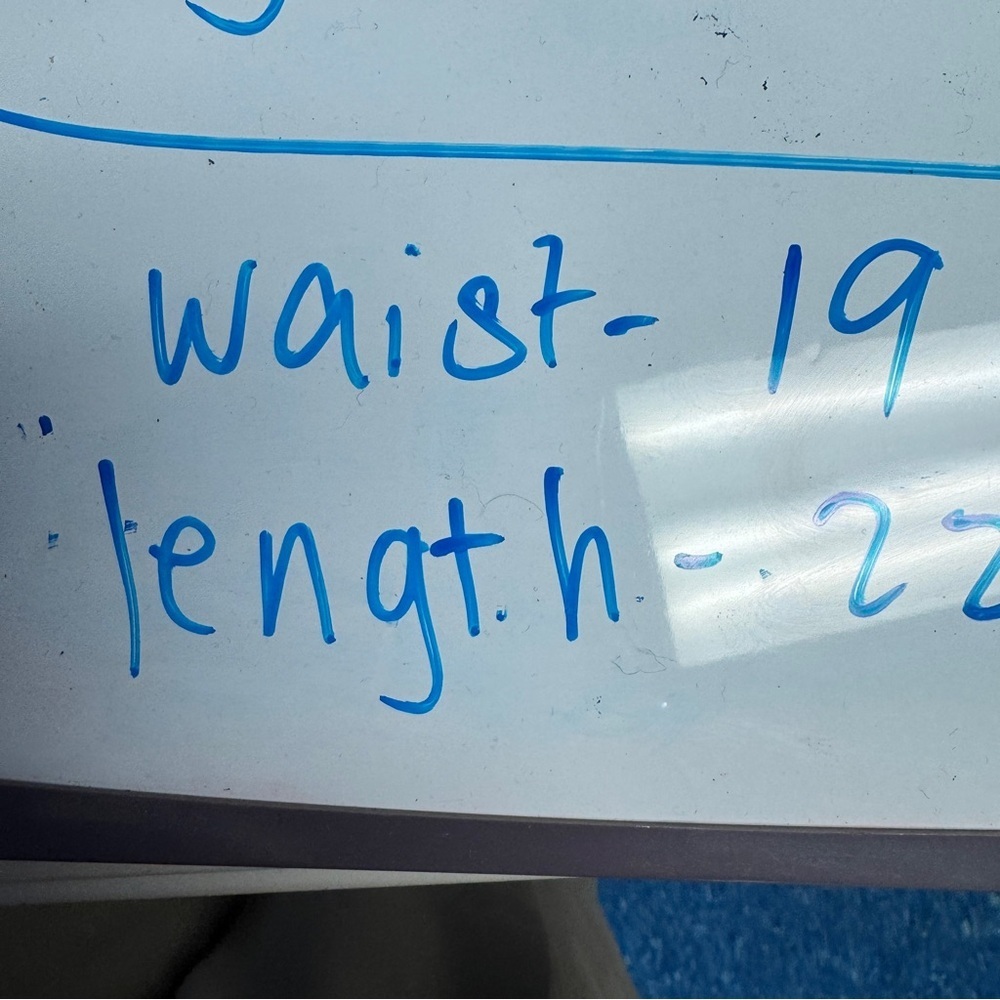 waist- 19
length- 22